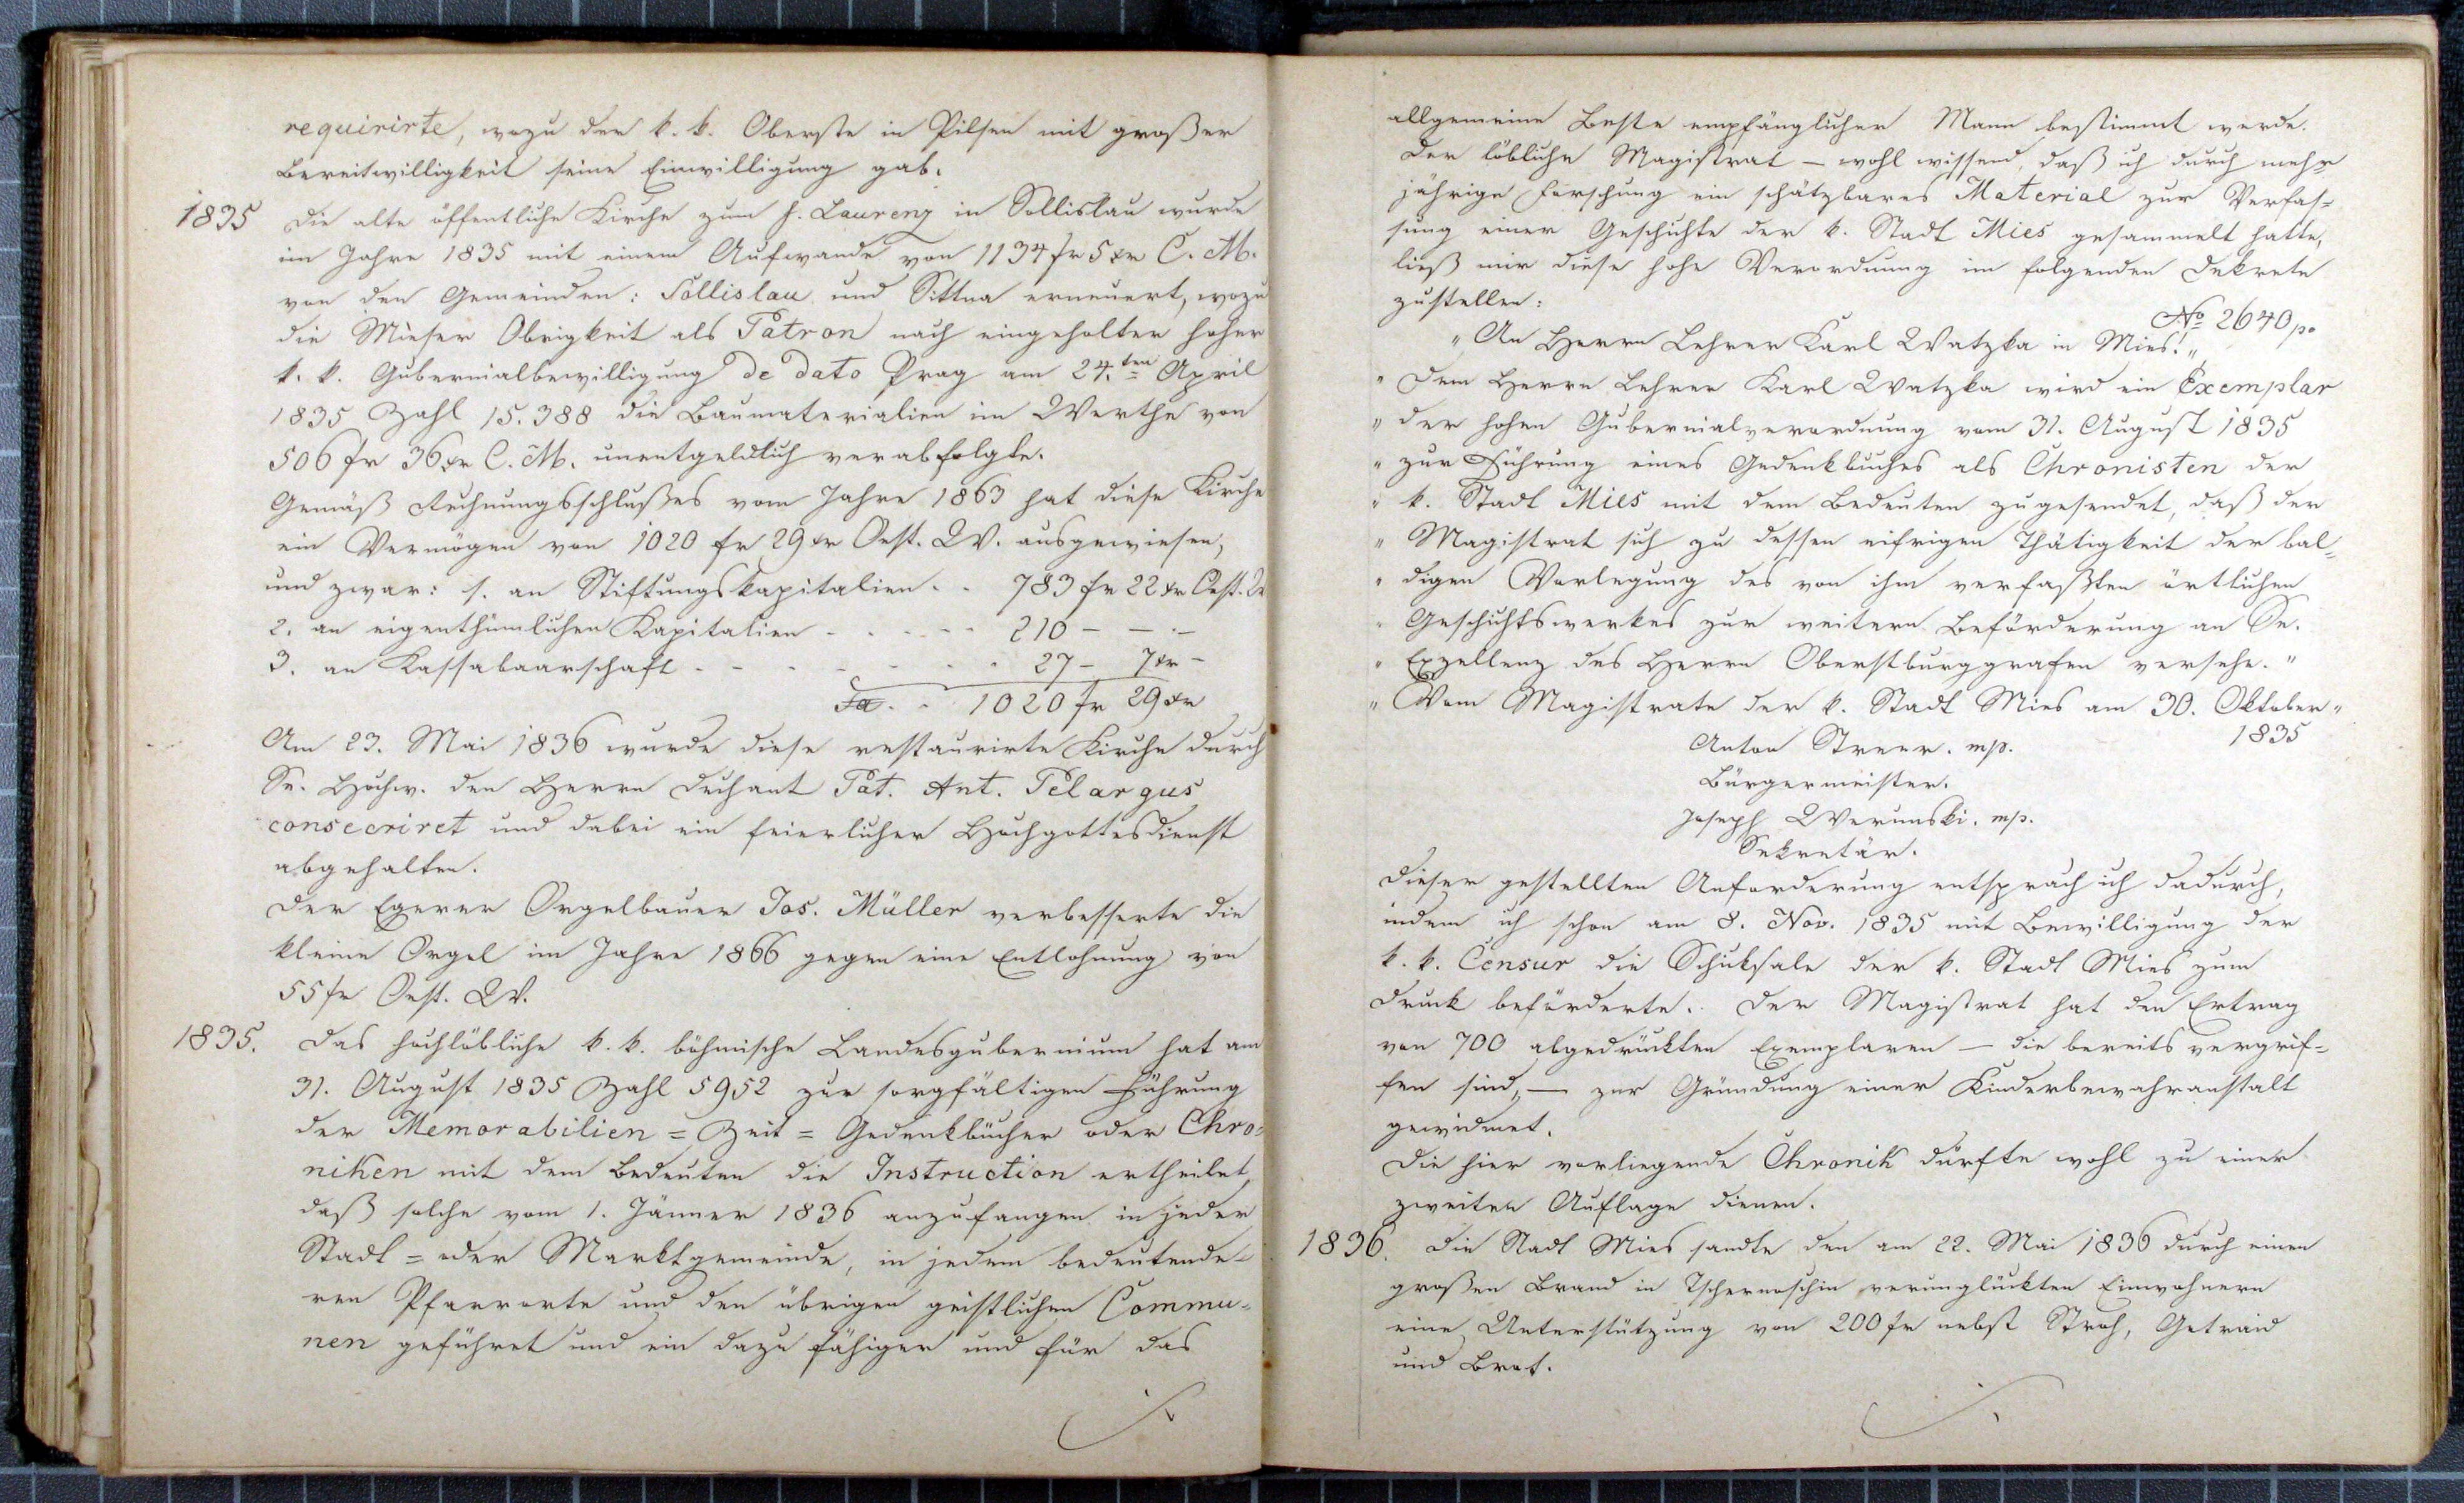 requirirte, wozu der k. k. Oberste in Pilsen mit großer
Bereitwilligkeit seine Einwilligung gab.
1835 Die alte öffentliche Kirche zum h. Laurenz in Sollislau wurde
im Jahre 1835 mit einem Aufwande von 1134 fr 5 xr C. M.
von den Gemeinden: Sollislau und Sittna erneuert, wozu
die Mieser Obrigkeit als Patron nach eingeholter hoher
k. k. Gubernialbewilligung de dato Prag am 24.ten April
1835 Zahl 15.388 die Baumaterialien im Werthe von
506 fr 36 xr C. M. unentgeldlich verabfolgte.
Gemäß Rechnungsschlußes vom Jahre 1863 hat diese Kirche
ein Vermögen von 1020 fr 29 xr Oest. W. ausgewiesen,
und zwar: 1. an Stiftungskapitalien . . 783 fr 22 xr Oest. W
2. an eigenthümlichen Kapitalien . . . . . 210 – – . –
3. an Kassabaarschaft . . . . . . . . 27 – 7 xr –
Sa . . 1020 fr 29 xr
Am 23. Mai 1836 wurde diese restaurirte Kirche durch
Se. Hochw. den Herrn Dechant Pat. Ant. Pelargus
consecriret und dabei ein feierlicher Hochgottesdienst
abgehalten.
Der Egerer Orgelbauer Jos. Müller verbesserte die
kleine Orgel im Jahre 1866 gegen eine Entlohnung von
55 fr Oest. W.
1835. Das hochlöbliche k. k. böhmische Landesgubernium hat am
31. August 1835 Zahl 5952 zur sorgfältigen Führung
der Memorabilien = Zeit = Gedenkbücher oder Chro=
niken mit dem Bedeuten die Instruction ertheilet,
daß solche vom 1. Jänner 1836 anzufangen in jeder
Stadt = oder Marktgemeinde, in jedem bedeutende=
ren Pfarrorte und den übrigen geistlichen Commu=
nen geführet und ein dazu fähiger und für das
allgemeine Beste empfänglicher Mann bestimmt werde.
Der löbliche Magistrat – wohl wissend, daß ich durch mehr
jährige Forschung ein schätzbares Material zur Verfas=
sung einer Geschichte der k. Stadt Mies gesammelt hatte,
ließ mir diese hohe Verordnung im folgenden Dekrete
zustellen:
No 2640 p.
„ An Herrn Lehrer Karl Watzka in Mies! „
„ Dem Herrn Lehrer Karl Watzka wird ein Exemplar
„ der hohen Gubernialverordnung vom 31. August 1835
„ zur Führung eines Gedenkbuches als Chronisten der
„ k. Stadt Mies mit dem Bedeuten zugesendet, daß der
„ Magistrat sich zu dessen eifrigen Thätigkeit der bal=
„ digen Vorlegung des von ihm verfaßten örtlichen
„ Geschichtswerkes zur weitern Beförderung an Se.
„ Exzellenz des Herrn Oberstburggrafen versehe. "
„ Vom Magistrate der k. Stadt Mies am 30. Oktober „
1835
Anton Streer. mp.
Bürgermeister.
Joseph Werunski. mp.
Sekretär.
Dieser gestellten Anforderung entsprach ich dadurch,
indem ich schon am 8. Nov. 1835 mit Bewilligung der
k. k. Censur die Schicksale der k. Stadt Mies zum
Druck beförderte. Der Magistrat hat den Ertrag
von 700 abgedrückten Exemplaren – die bereits vergrif=
fen sind, – zur Gründung einer Kinderbewahranstalt
gewidmet.
Die hier vorliegende Chronik dürfte wohl zu einer
zweiten Auflage dienen.
1836. Die Stadt Mies sandte den am 22. Mai 1836 durch einen
großen Brand in Tschernoschin verunglückten Einwohnern
eine Unterstützung von 200 fr nebst Stroh, Getraid
und Brot.